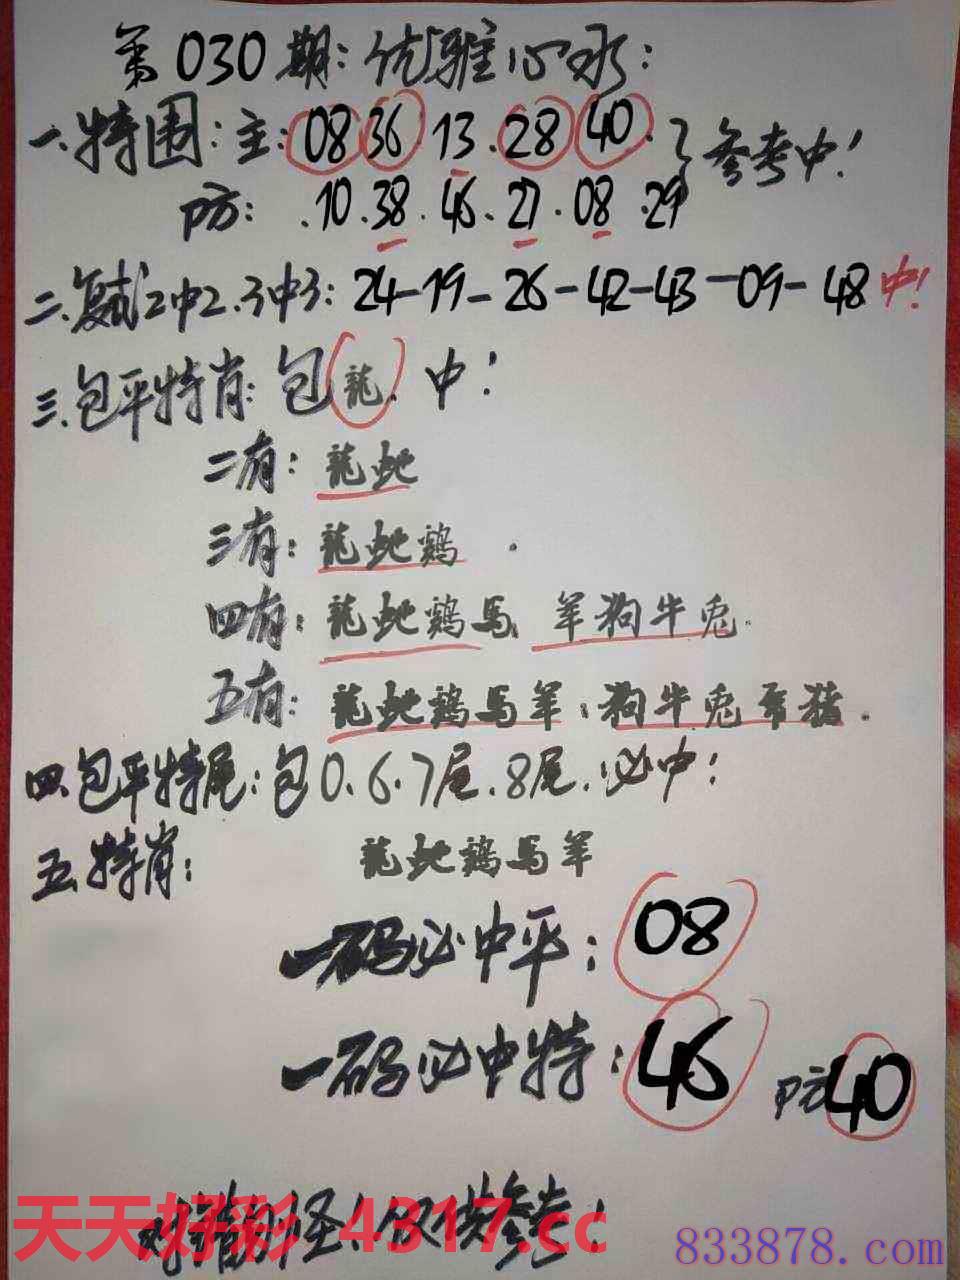 第030期:优雅心水:
一.特围:主:08 36.13.28 40.}参考中!
防:.10.38.46.27.08.29
二.复试2中2.3中3:24-19-26-42-43-09-48中!
三.包平特肖:包龍.中!
二有:龍虵
三有:龍虵鷄.
四有:龍虵鷄馬 羊狗牛兎.
五有:龍虵鷄馬羊:狗牛兎 猪.
四.包平特尾:包0.6.7尾.8尾.必中!
五.特肖:龍虵鷄馬羊
一码必中平:08
一码必中特:46 防40
对错勿怪!仅供参考!
天天好彩 4317.cc
833878.com